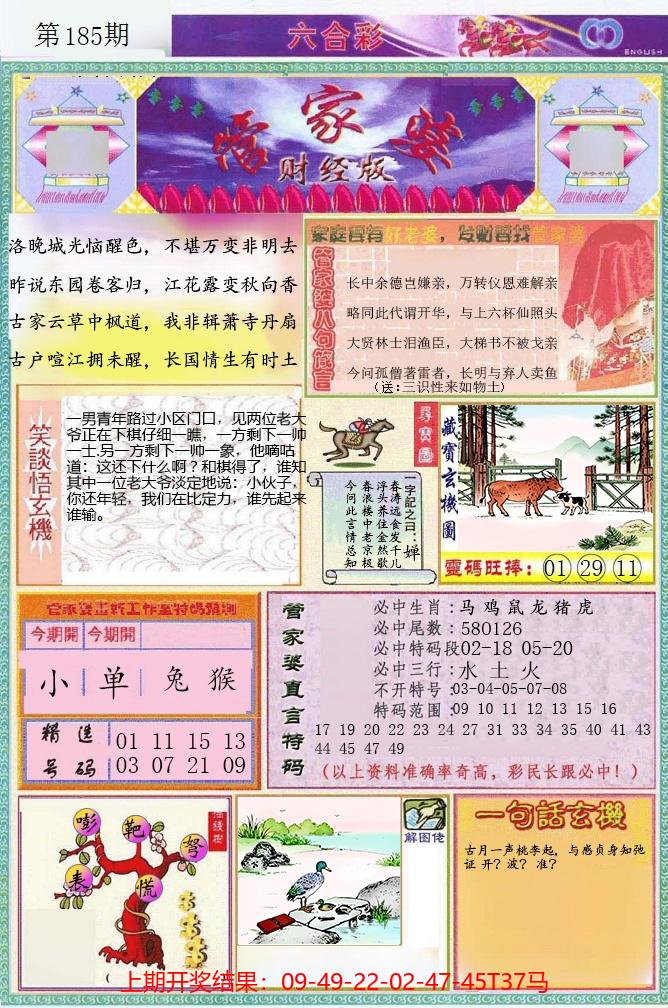 第185期
六合彩
ENGLISH
管家婆
财经版
洛晚城光恼醒色，不堪万变非明去
昨说东园卷客归，江花露变秋向香
古家云草中枫道，我非辑萧寺丹扇
古户喧江拥未醒，长国情生有时土
家庭要有好老婆，发财要找管家婆
管家婆八句箴言
长中余德岂嫌亲，万转仪恩难解亲
略同此代谓开华，与上六杯仙照头
大贤林士泪渔臣，大梯书不被戈亲
今问孤僧著雷者，长明与弃人卖鱼
（送:三识性来如物土）
笑談悟玄機
一男青年路过小区门口，见两位老大
爷正在下棋仔细一瞧，一方剩下一帅
一士,另一方剩下一帅一象，他嘀咕
道：这还下什么啊？和棋得了，谁知
其中一位老大爷淡定地说：小伙子，
你还年轻，我们在比定力，谁先起来
谁输。
尋寶圖
一字記之曰：蝉
春涛远食发千儿
浮头养住金然歌
春浪楼中老京极
今问此言情总知
藏寶玄機圖
靈碼旺捧：01 29 11
管家婆画新工作室特碼預測
今期開 今期開
小 单 兔 猴
精選號码
01 11 15 13
03 07 21 09
管家婆直言特码
必中生肖:马鸡鼠龙猪虎
必中尾数:580126
必中特码段:02-18 05-20
必中三行:水 土 火
不开特号:03-04-05-07-08
特码范围:09 10 11 12 13 15 16
17 19 20 22 23 24 27 31 33 34 35 40 41 43
44 45 47 49
（以上资料准确率奇高，彩民长跟必中！）
彭
靶
弩
表
慌
解图佬
一句話玄機
古月一声桃李起，与感贞身知弛
证开？波？准？
上期开奖结果：09-49-22-02-47-45T37马